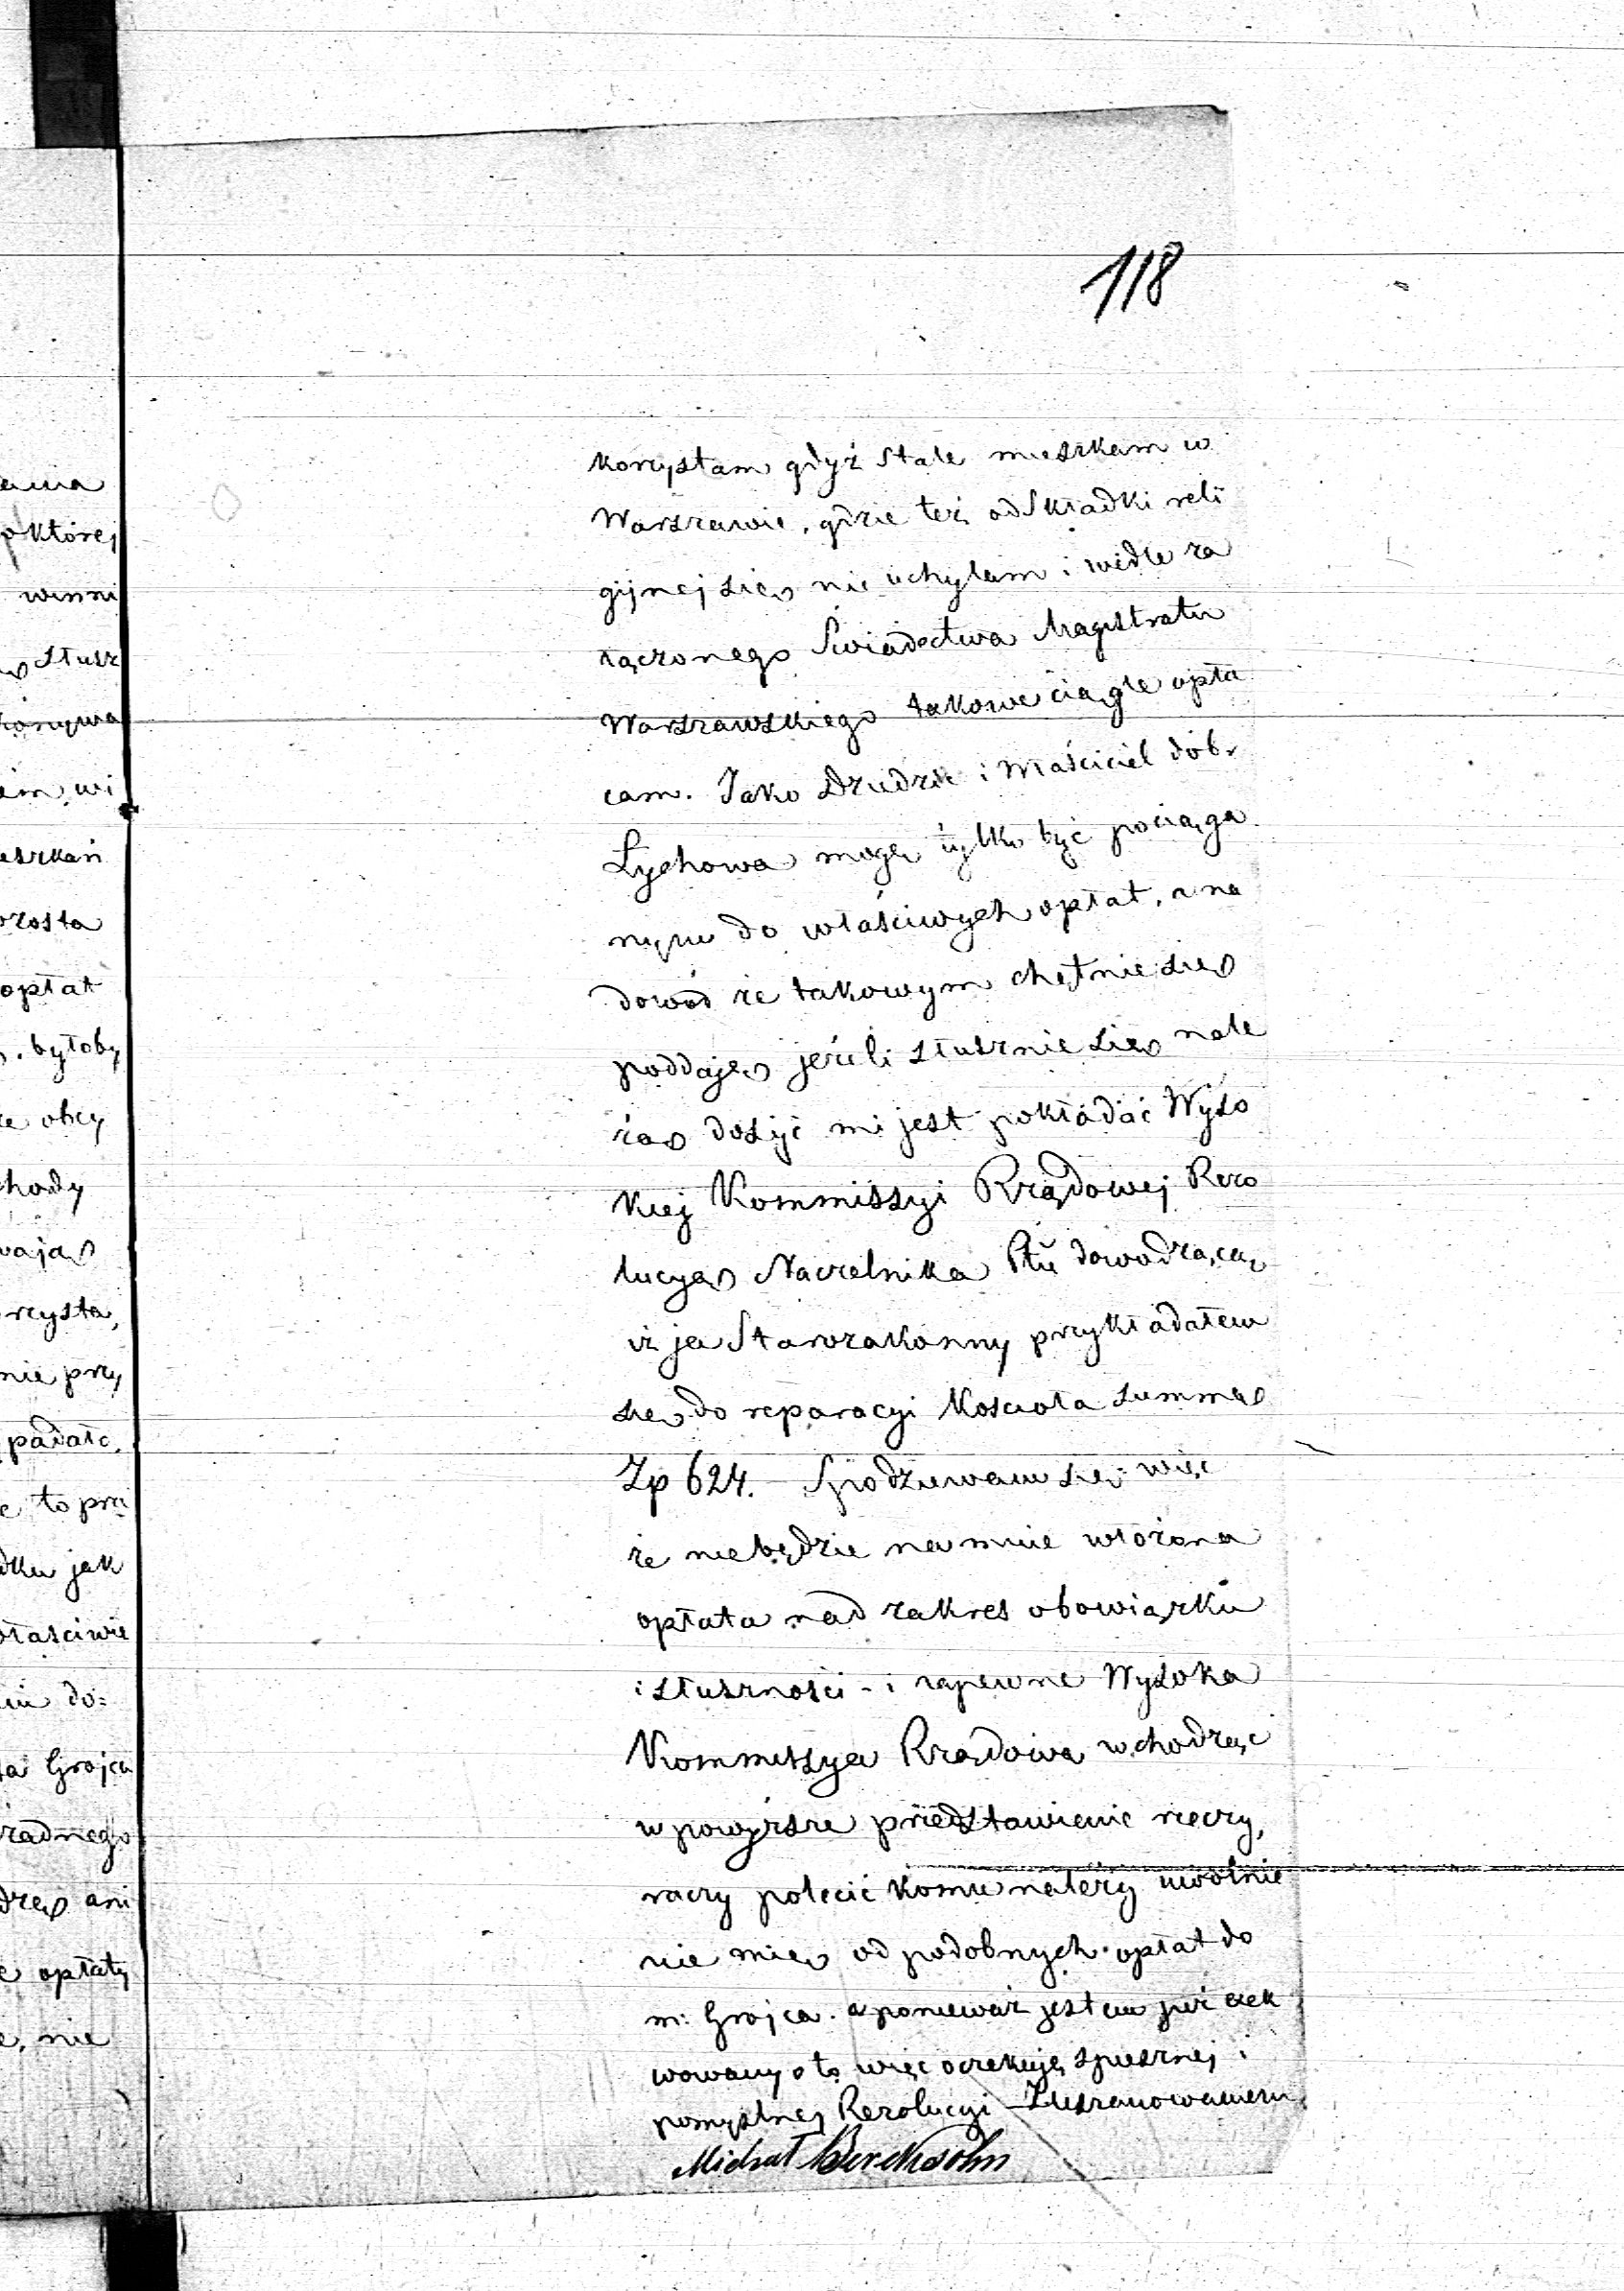 118
korzystam gdyż stale mieszkam w
Warszawie, gdzie też od Składki reli
gijnej się nie uchylam i wedle za
łączonego Świadectwa Magistratu
Warszawskiego takowe ciągle opła
cam. Jako Dziedzic i właściciel dóbr
Łychowa mogę tylko być pociąga
nym do właściwych opłat, a na
dowód że takowym chętnie się
poddaję jeżeli słusznie się nale
żą dosyć mi jest pokładać Wyso
kiej Kommissyi Rządowej Rezo
lucyą Naczelnika Ptu dowodzącą
iż ja Starozakonny przykładałem
się do reparacyi Kościoła summą
Zp 624. Spodziewam się więc
że niebędzie na mnie włożona
opłata nad zakres obowiązku
i słuszności - i zapewne Wysoka
Kommissya Rządowa wchodząc
w powyższe przedstawienie rzeczy,
raczy polecić komu należy uwolnie
nie mię od podobnych opłat do
m: Grojca. a ponieważ jestem już exek
wowany o to więc oczekuję spiesznej i
pomyślnej Rezolucyi - Z uszanowaniem
Michał Bereksohn

o której
winni
słusz
opłat
byłoby
obcy
nie przy
padałc
to prz
jak
do:
Grojca
żadnego
ani
opłaty
nie